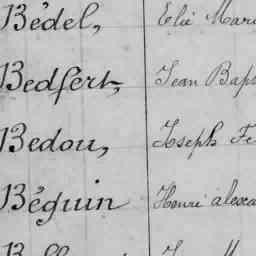 Bédel, Elie Mari
Bedfert, Jean Bap
Bedou, Joseph Fe
Béguin Henri alexa